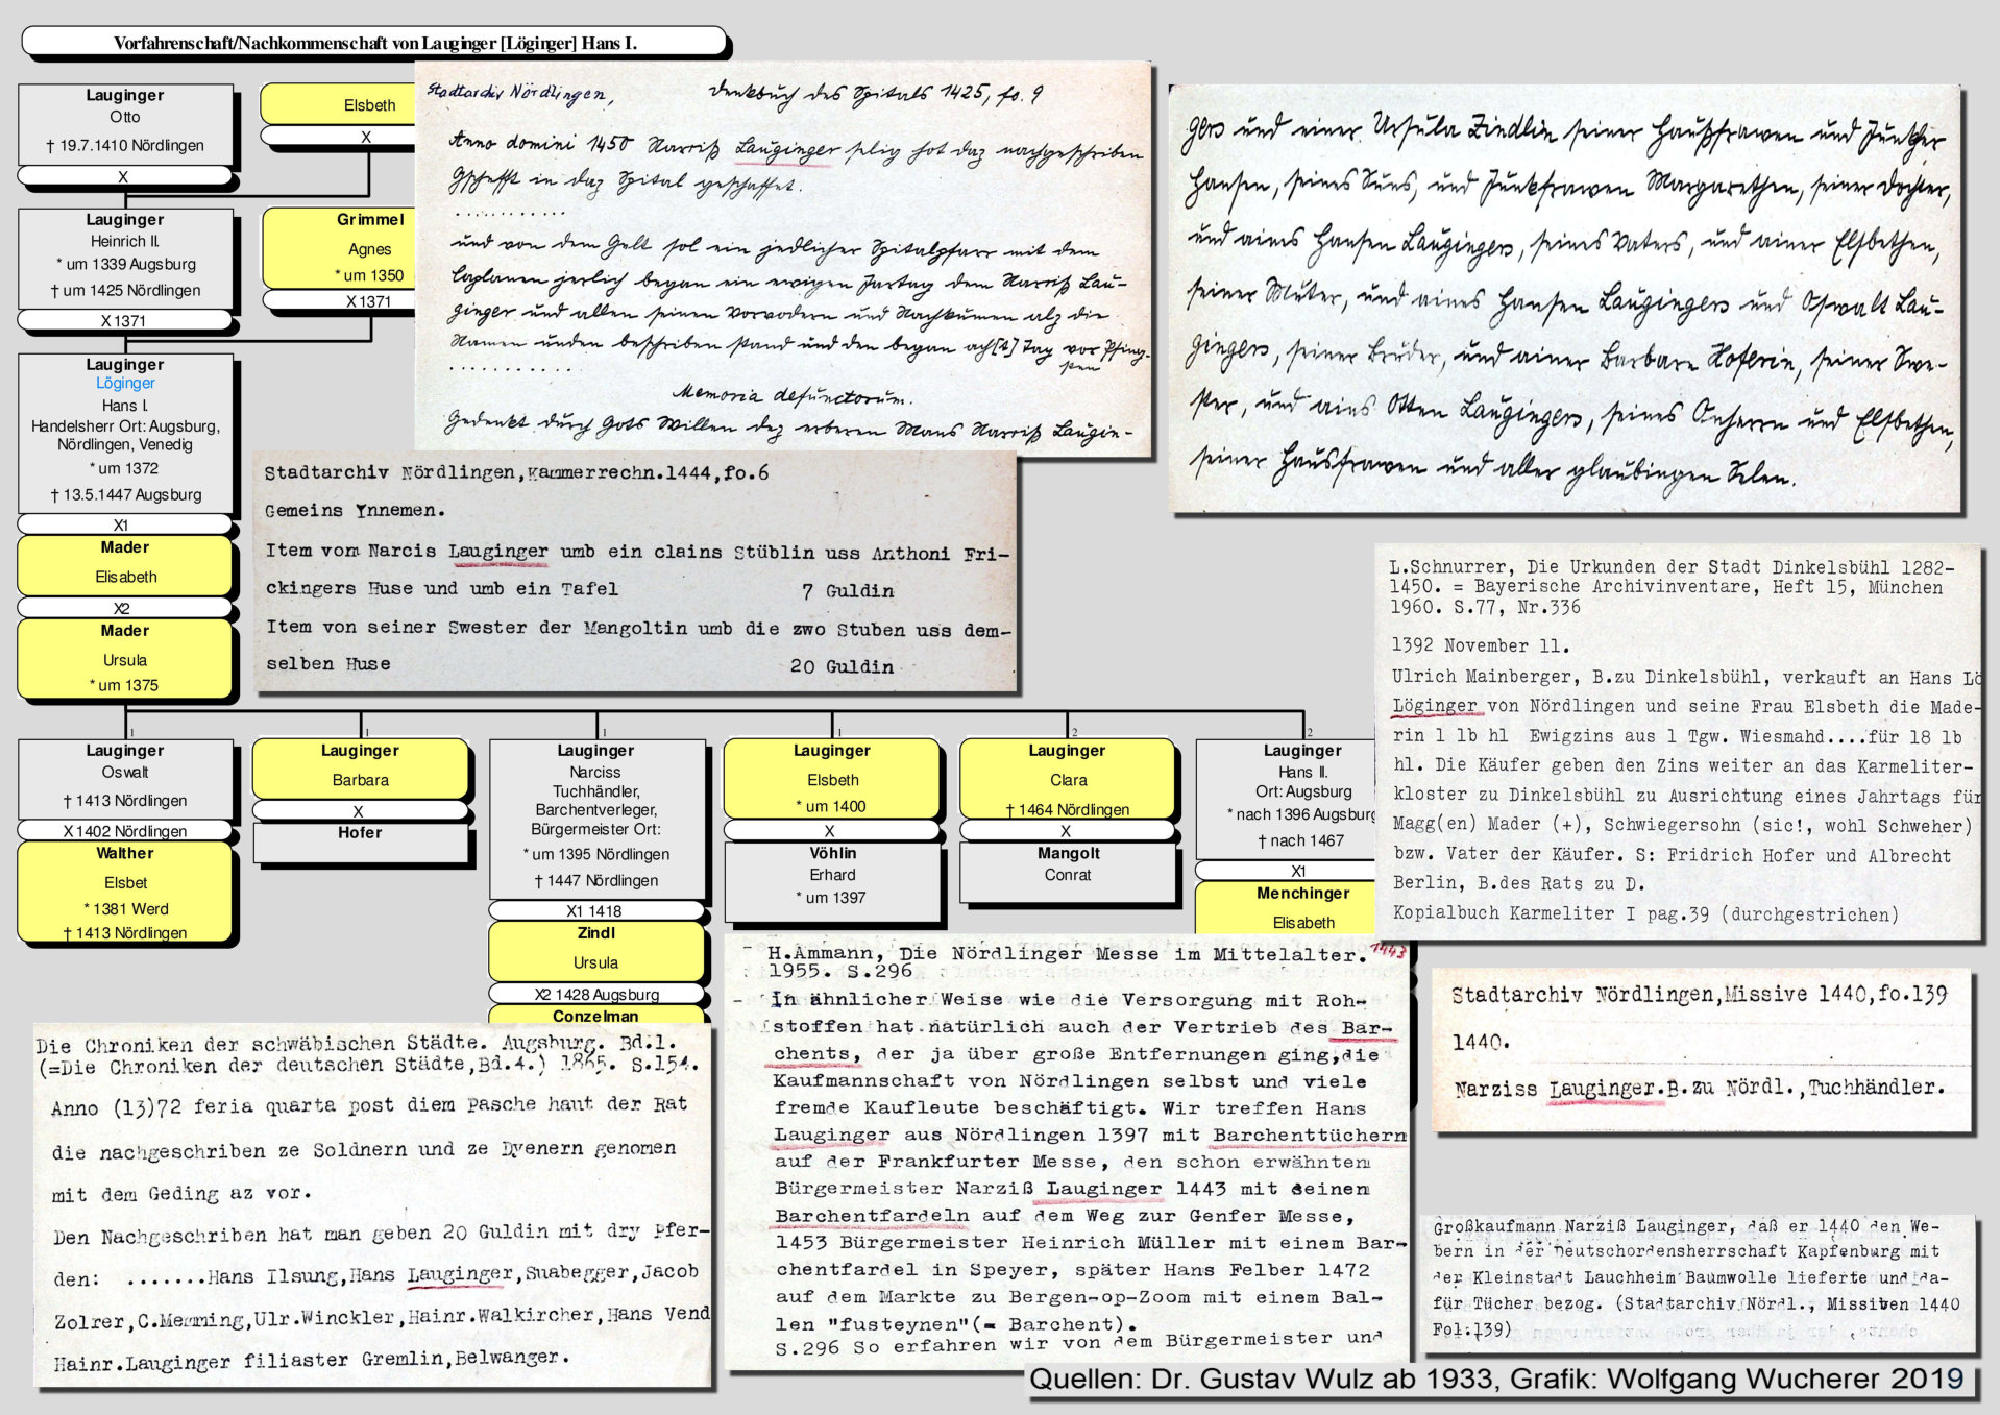 Vorfahrenschaft/Nachkommenschaft von Lauginger [Löginger] Hans I.
Lauginger
Otto
† 19.7.1410 Nördlingen
X
Elsbeth
X
Lauginger
Heinrich II.
* um 1339 Augsburg
† um 1425 Nördlingen
X 1371
Grimmel
Agnes
* um 1350
X 1371
Lauginger
Löginger
Hans I.
Handelsherr Ort: Augsburg,
Nördlingen, Venedig
* um 1372
† 13.5.1447 Augsburg
X1
Mader
Elisabeth
X2
Mader
Ursula
* um 1375
Stadtarchiv Nördlingen,
Denkbuch des Spitals 1425, fo. 9
Anno domini 1450 Narciß Lauginger selig hot daz nachgeschriben
Gschefft in daz Spital geschaffet.
...........
und von dem Gelt sol ein jedlicher Spitalpfarr mit dem
Caplanen jerlich began ein ewigen Jartag dem Narciß Lau-
ginger und allen seinen Vorvodern und Nachkumen alz die
Namen unden beschriben stand und den began ach[t] Tag vor Pfing-
sten
............
Memoria defunctorum.
Gedenkt durch Gots Willen dez erberen Mans Narciß Laugin-
gers und einer Ursula Zindlin seiner Haußfrawen und Junkher
Hansen, seines Suns, und Junkfrawen Margarethen, seiner Dochter,
und ains Hansen Laugingers, seines Vaters, und ainer Elsbethen,
seiner Muter, und aines Hansen Laugingers und Oswalt Lau-
gingers, seiner Brüder, und ainer Barbare Hoferin, seiner Swe-
ster, und ains Otten Laugingers, seines Anherrn und Elsbethen,
seiner Hausfrawen und aller glaubingen Selen.
Stadtarchiv Nördlingen,Kammerrechn.1444,fo.6
Gemeins Ynnemen.
Item vom Narcis Lauginger umb ein clains Stüblin uss Anthoni Fri-
ckingers Huse und umb ein Tafel 7 Guldin
Item von seiner Swester der Mangoltin umb die zwo Stuben uss dem-
selben Huse 20 Guldin
L.Schnurrer, Die Urkunden der Stadt Dinkelsbühl 1282-
1450. = Bayerische Archivinventare, Heft 15, München
1960. S.77, Nr.336
1392 November 11.
Ulrich Mainberger, B.zu Dinkelsbühl, verkauft an Hans Lö
Löginger von Nördlingen und seine Frau Elsbeth die Made-
rin 1 lb hl Ewigzins aus 1 Tgw. Wiesmahd....für 18 lb
hl. Die Käufer geben den Zins weiter an das Karmeliter-
kloster zu Dinkelsbühl zu Ausrichtung eines Jahrtags für
Magg(en) Mader (+), Schwiegersohn (sic!, wohl Schweher)
bzw. Vater der Käufer. S: Fridrich Hofer und Albrecht
Berlin, B.des Rats zu D.
Kopialbuch Karmeliter I pag.39 (durchgestrichen)
1
1
1
1
2
2
Lauginger
Oswalt
† 1413 Nördlingen
X 1402 Nördlingen
Walther
Elsbet
* 1381 Werd
† 1413 Nördlingen
Lauginger
Barbara
X
Hofer
Lauginger
Narciss
Tuchhändler,
Barchentverleger,
Bürgermeister Ort:
* um 1395 Nördlingen
† 1447 Nördlingen
X1 1418
Zindl
Ursula
X2 1428 Augsburg
Conzelman
Lauginger
Elsbeth
* um 1400
X
Vöhlin
Erhard
* um 1397
Lauginger
Clara
† 1464 Nördlingen
X
Mangolt
Conrat
Lauginger
Hans II.
Ort: Augsburg
* nach 1396 Augsburg
† nach 1467
X1
Menchinger
Elisabeth
Die Chroniken der schwäbischen Städte. Augsburg. Bd.1.
(=Die Chroniken der deutschen Städte,Bd.4.) 1865. S.154.
Anno (13)72 feria quarta post diem Pasche haut der Rat
die nachgeschriben ze Soldnern und ze Dyenern genomen
mit dem Geding az vor.
Den Nachgeschriben hat man geben 20 Guldin mit dry Pfer-
den: .......Hans Ilsung,Hans Lauginger,Suabegger,Jacob
Zolrer,C.Memming,Ulr.Winckler,Hainr.Walkircher,Hans Vend
Hainr.Lauginger filiaster Gremlin,Belwanger.
- H.Ammann, Die Nördlinger Messe im Mittelalter. 1443
1955. S.296
- In ähnlicher Weise wie die Versorgung mit Roh-
stoffen hat natürlich auch der Vertrieb des Bar-
chents, der ja über große Entfernungen ging,die
Kaufmannschaft von Nördlingen selbst und viele
fremde Kaufleute beschäftigt. Wir treffen Hans
Lauginger aus Nördlingen 1397 mit Barchenttüchern
auf der Frankfurter Messe, den schon erwähnten
Bürgermeister Narziß Lauginger 1443 mit seinen
Barchentfardeln auf dem Weg zur Genfer Messe,
1453 Bürgermeister Heinrich Müller mit einem Bar-
chentfardel in Speyer, später Hans Felber 1472
auf dem Markte zu Bergen-op-Zoom mit einem Bal-
len "fusteynen"(= Barchent).
S.296 So erfahren wir von dem Bürgermeister und
Stadtarchiv Nördlingen,Missive 1440,fo.139
1440.
Narziss Lauginger.B.zu Nördl.,Tuchhändler.
Großkaufmann Narziß Lauginger, daß er 1440 den We-
bern in der Deutschordensherrschaft Kapfenburg mit
der Kleinstadt Lauchheim Baumwolle lieferte und da-
für Tücher bezog. (Stadtarchiv Nördl., Missiven 1440
Fol.139)
Quellen: Dr. Gustav Wulz ab 1933, Grafik: Wolfgang Wucherer 2019